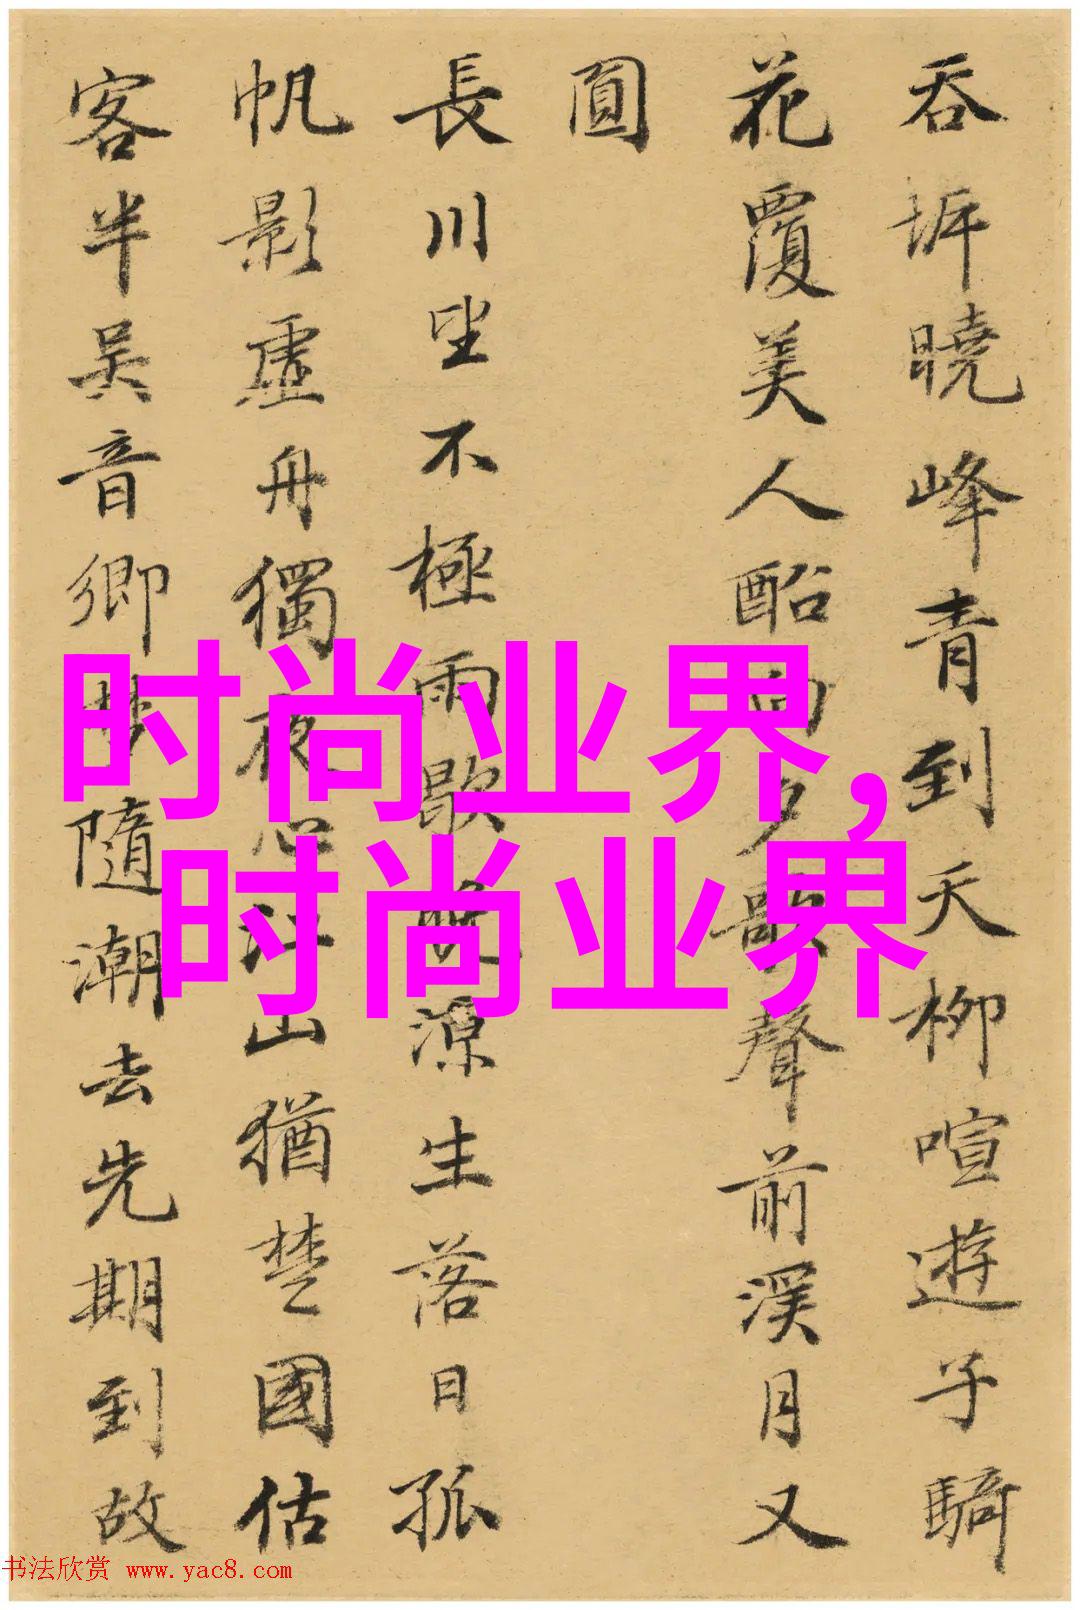 吞坼曉峰青到天柳喧遊子騎
花覆美人酩向夕歌聲前溪月又
圓
長川望不極雨歇新涼生落日孤
帆影虛舟獨夜心江山猶楚國估
客半吳音鄉夢隨潮去先期到故
时尚业界，
时尚业界
书法欣赏 www.yac8.com